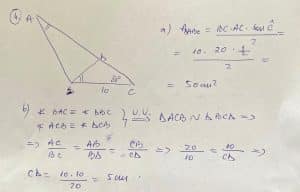 4
A
D
B
C
30°
10
a) A_ABC = BC · AC · sin Ĉ / 2
= 10 · 20 · 1/2 / 2 =
= 50 cm²
b) ∢ BAC = ∢ DBC
∢ ACB = ∢ DCB } U.U. ⟹ ΔACB ~ ΔBCD =>
=> AC/BC = AB/BD = CB/CD => 20/10 = 10/CD =>
CD = 10·10/20 = 5 cm.